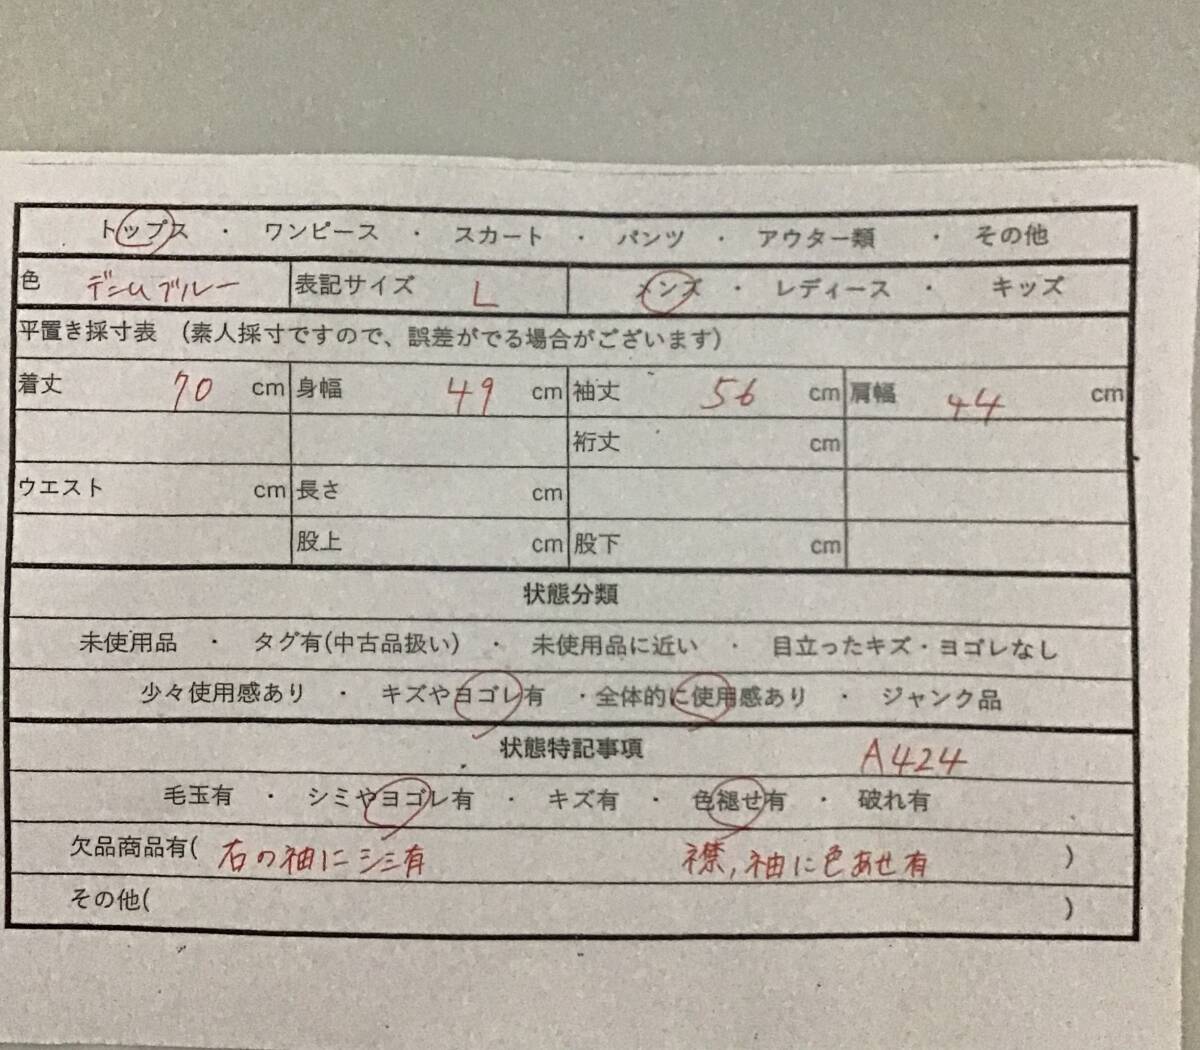 トップス ・ ワンピース ・ スカート ・ パンツ ・ アウター類 ・ その他
色 デニムブルー 表記サイズ L メンズ ・ レディース ・ キッズ
平置き採寸表 (素人採寸ですので、誤差がでる場合がございます)
着丈 70 cm 身幅 49 cm 袖丈 56 cm 肩幅 44 cm
裄丈 cm
ウエスト cm 長さ cm
股上 cm 股下 cm
状態分類
未使用品 ・ タグ有(中古品扱い) ・ 未使用品に近い ・ 目立ったキズ・ヨゴレなし
少々使用感あり ・ キズやヨゴレ有 ・全体的に使用感あり ・ ジャンク品
状態特記事項 A424
毛玉有 ・ シミやヨゴレ有 ・ キズ有 ・ 色褪せ有 ・ 破れ有
欠品商品有( 右の袖にシミ有 襟,袖に色あせ有 )
その他( )